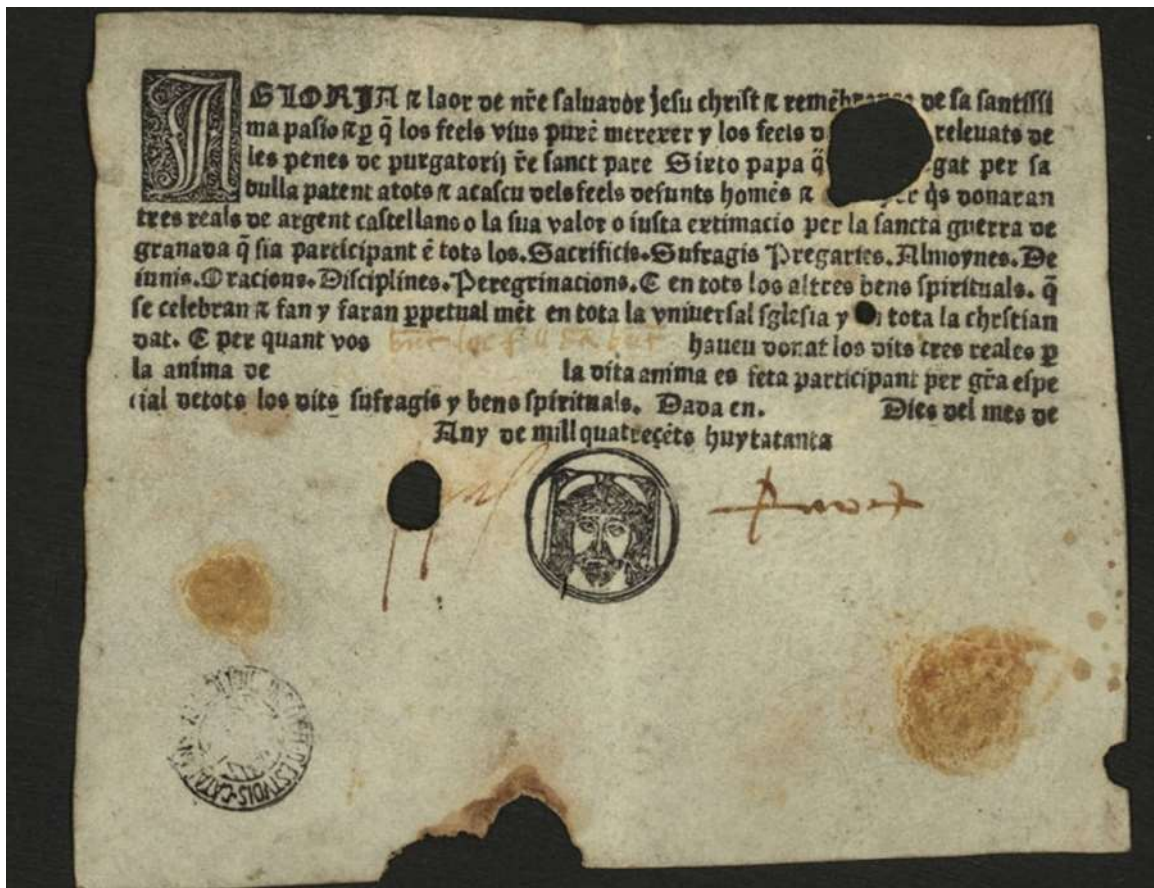 A GLORJA ꞇ laor de nr̃e saluador Jesu christ ꞇ remẽbrança de sa santissi
ma pasio ꞇ ꝑ q̃ los feels vius purẽ merexer y los feels releuats de
les penes de purgatorij r̃e sanct pare Sixto papa q̃ gat per sa
bulla patent atots ꞇ acascu dels feels defunts homẽs ꞇ q̃s donaran
tres reals de argent castellans o la sua valor o iusta extimacio per la sancta guerra de
granada q̃ sia participant ẽ tots los. Sacrificis. Sufragis Pregaries. Almoynes. De
iunis. Oracions. Disciplines. Peregrinacions. E en tots los altres bens spirituals. q̃
se celebran ꞇ fan y faran ꝑpetual mẽt en tota la vniuersal sglesia y en tota la chrstian
dat. E per quant vos haueu donat los dits tres reales ꝑ
la anima de la dita anima es feta participant per gr̃a espe
cial detots los dits sufragis y bens spirituals. Dada en. Dies del mes de
Any de mill quatreçẽts huytatanta
D'ESTVDIS·CATA